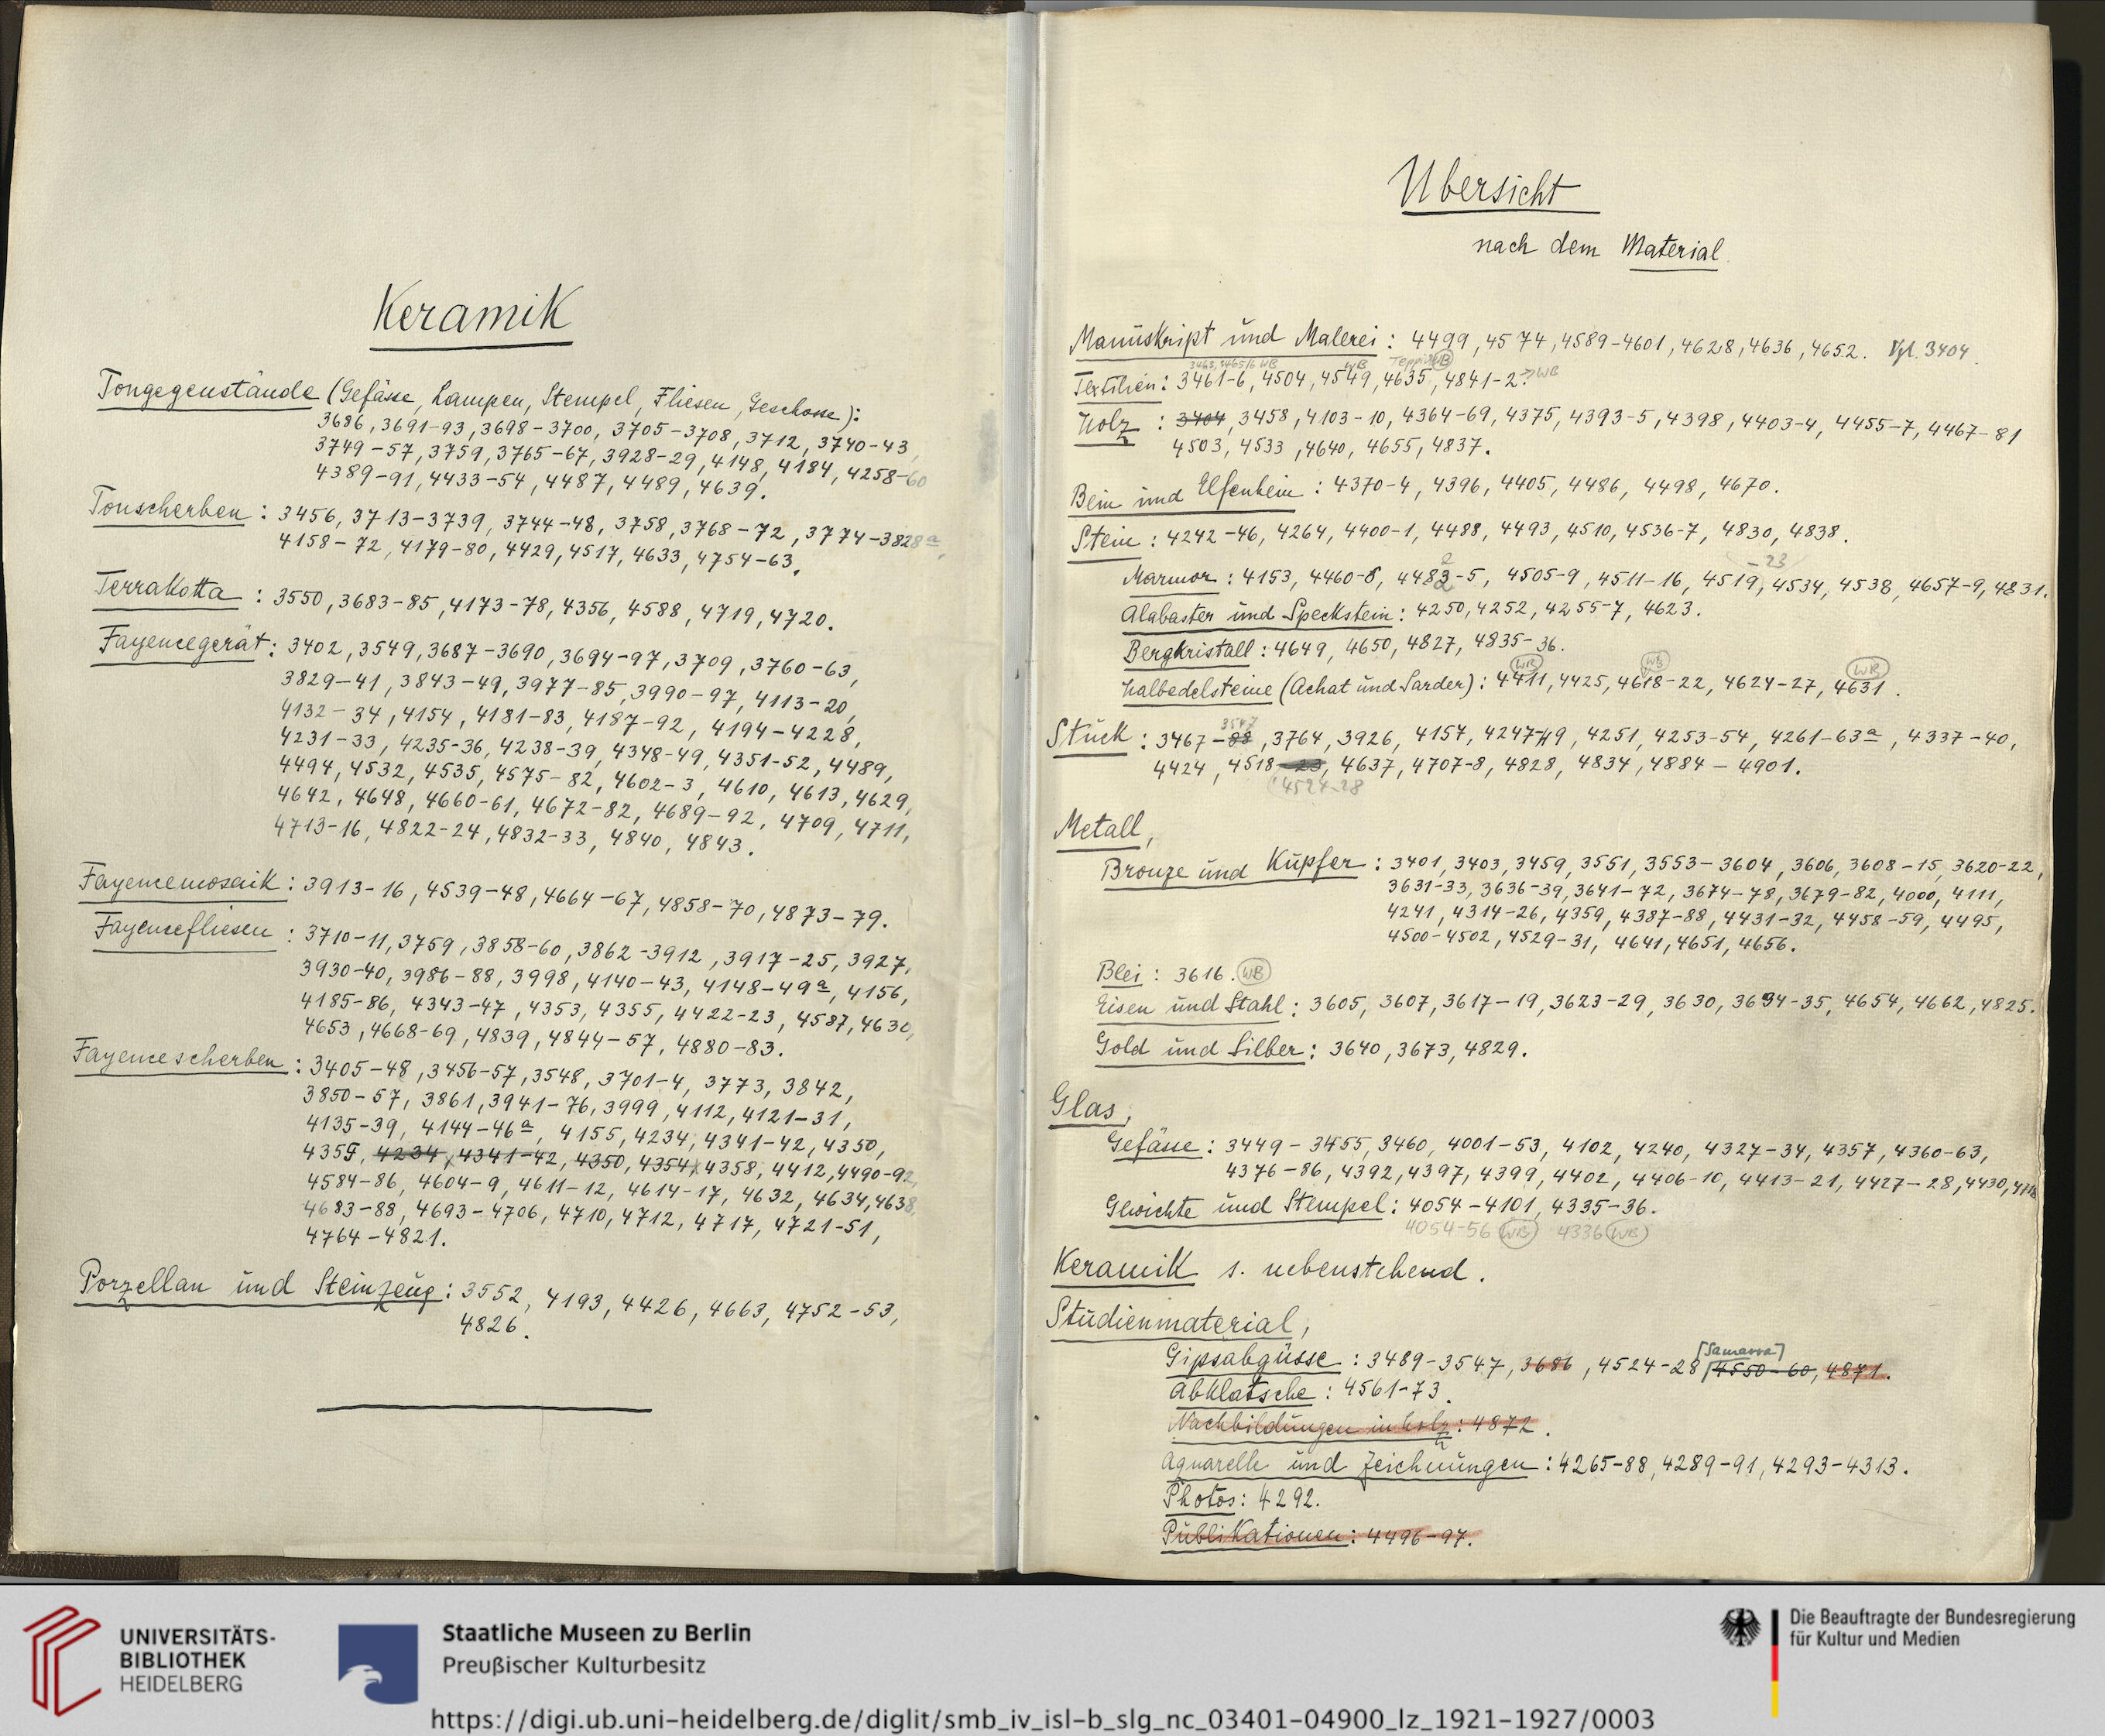 Keramik
Tongegenstände (Gefässe, Lampen, Stempel, Fliesen, Geschosse):
3686, 3691-93, 3698-3700, 3705-3708, 3712, 3740-43,
3749-57, 3759, 3765-67, 3928-29, 4148, 4184, 4258-60
4389-91, 4433-54, 4487, 4489, 4639.
Tonscherben: 3456, 3713-3739, 3744-48, 3758, 3768-72, 3774-3828a,
4158-72, 4179-80, 4429, 4517, 4633, 4754-63.
Terrakotta: 3550, 3683-85, 4173-78, 4356, 4588, 4719, 4720.
Fayencegerät: 3402, 3549, 3687-3690, 3694-97, 3709, 3760-63,
3829-41, 3843-49, 3977-85, 3990-97, 4113-20,
4132-34, 4154, 4181-83, 4187-92, 4194-4228,
4231-33, 4235-36, 4238-39, 4348-49, 4351-52, 4489,
4494, 4532, 4535, 4575-82, 4602-3, 4610, 4613, 4629,
4642, 4648, 4660-61, 4672-82, 4689-92, 4709, 4711,
4713-16, 4822-24, 4832-33, 4840, 4843.
Fayencemosaik: 3913-16, 4539-48, 4664-67, 4858-70, 4873-79.
Fayencefliesen: 3710-11, 3759, 3858-60, 3862-3912, 3917-25, 3927,
3930-40, 3986-88, 3998, 4140-43, 4148-49a, 4156,
4185-86, 4343-47, 4353, 4355, 4422-23, 4587, 4630,
4653, 4668-69, 4839, 4844-57, 4880-83.
Fayencescherben: 3405-48, 3456-57, 3548, 3701-4, 3773, 3842,
3850-57, 3861, 3941-76, 3999, 4112, 4121-31,
4135-39, 4144-46a, 4155, 4234, 4341-42, 4350,
4355, 4234, 4341-42, 4350, 4354, 4358, 4412, 4490-92,
4584-86, 4604-9, 4611-12, 4614-17, 4632, 4634, 4638,
4683-88, 4693-4706, 4710, 4712, 4717, 4721-51,
4764-4821.
Porzellan und Steinzeug: 3552, 4193, 4426, 4663, 4752-53,
4826.
Übersicht
nach dem Material.
Manuskript und Malerei: 4499, 4574, 4589-4601, 4628, 4636, 4652. Vgl. 3404.
3463, 3465/6 WB WB Teppich WB
Textilien: 3461-6, 4504, 4549, 4635, 4841-2. ? WB
Holz: 3404, 3458, 4103-10, 4364-69, 4375, 4393-5, 4398, 4403-4, 4455-7, 4467-81
4503, 4533, 4640, 4655, 4837.
Bein und Elfenbein: 4370-4, 4396, 4405, 4486, 4498, 4670.
Stein: 4242-46, 4264, 4400-1, 4488, 4493, 4510, 4536-7, 4830, 4838.
-23
Marmor: 4153, 4460-8, 4482-5, 4505-9, 4511-16, 4519, 4534, 4538, 4657-9, 4831.
Alabaster und Speckstein: 4250, 4252, 4255-7, 4623.
Bergkristall: 4649, 4650, 4827, 4835-36.
WB WB WB
Halbedelsteine (Achat und Sarder): 4411, 4425, 4618-22, 4624-27, 4631.
3547
Stuck: 3467-88, 3764, 3926, 4157, 4247-49, 4251, 4253-54, 4261-63a, 4337-40,
4424, 4518-23, 4637, 4707-8, 4828, 4834, 4884-4901.
4524-28
Metall,
Bronze und Kupfer: 3401, 3403, 3459, 3551, 3553-3604, 3606, 3608-15, 3620-22,
3631-33, 3636-39, 3641-72, 3674-78, 3679-82, 4000, 4111,
4241, 4314-26, 4359, 4387-88, 4431-32, 4458-59, 4495,
4500-4502, 4529-31, 4641, 4651, 4656.
Blei: 3616. WB
Eisen und Stahl: 3605, 3607, 3617-19, 3623-29, 3630, 3634-35, 4654, 4662, 4825.
Gold und Silber: 3640, 3673, 4829.
Glas,
Gefässe: 3449-3455, 3460, 4001-53, 4102, 4240, 4327-34, 4357, 4360-63,
4376-86, 4392, 4397, 4399, 4402, 4406-10, 4413-21, 4427-28, 4430,
Gewichte und Stempel: 4054-4101, 4335-36.
4054-56 WB 4336 WB
Keramik s. nebenstehend.
Studienmaterial,
[Samarra]
Gipsabgüsse: 3489-3547, 3686, 4524-28, 4550-60, 4871.
Abklatsche: 4561-73.
Nachbildungen in Holz: 4872.
Aquarelle und Zeichnungen: 4265-88, 4289-91, 4293-4313.
Photos: 4292.
Publikationen: 4496-97.
UNIVERSITÄTS-
BIBLIOTHEK
HEIDELBERG
Staatliche Museen zu Berlin
Preußischer Kulturbesitz
Die Beauftragte der Bundesregierung
für Kultur und Medien
https://digi.ub.uni-heidelberg.de/diglit/smb_iv_isl-b_slg_nc_03401-04900_lz_1921-1927/0003